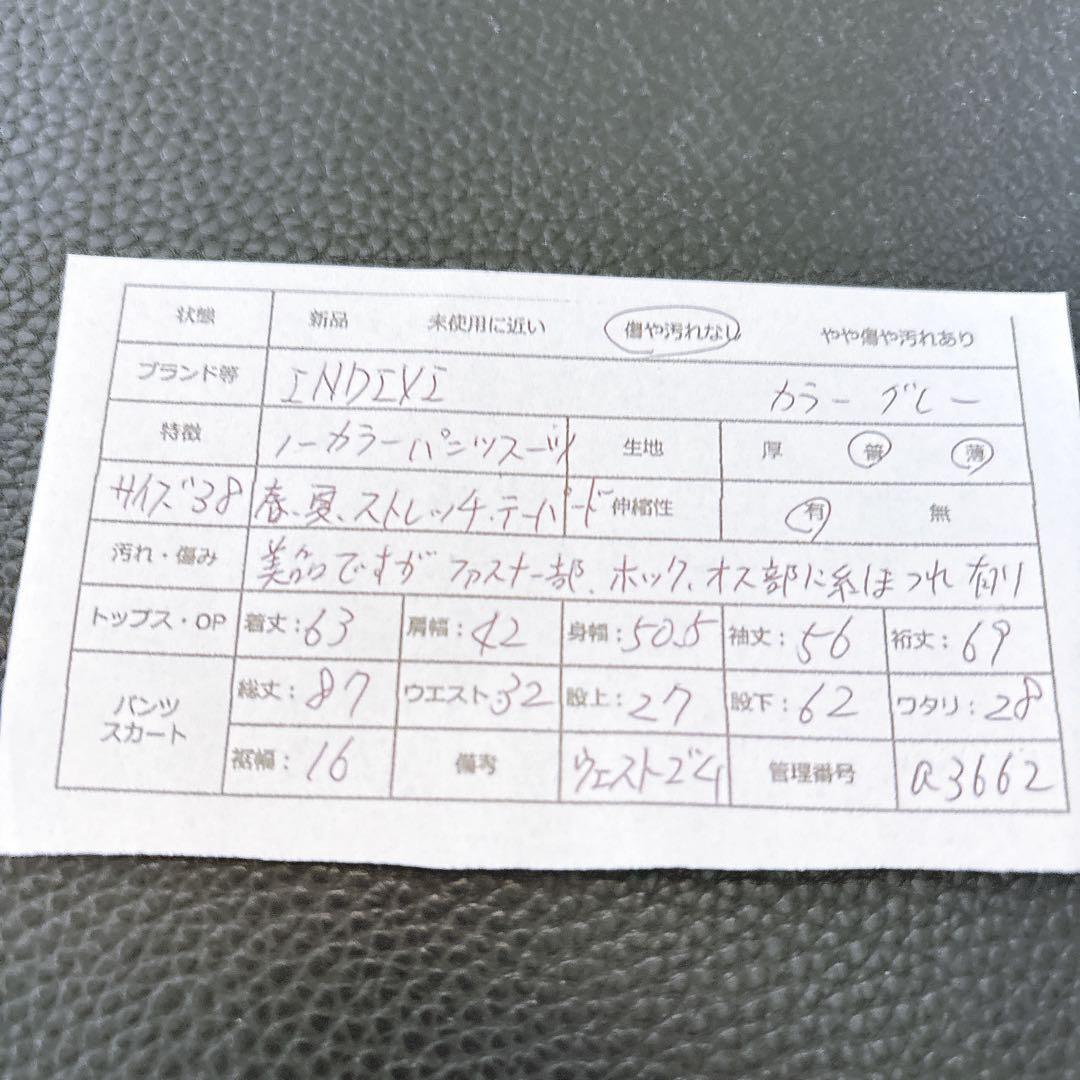 状態 新品 未使用に近い 傷や汚れなし やや傷や汚れあり
ブランド等 INDIVI カラー グレー
特徴 ノーカラーパンツスーツ 生地 厚 普 薄
サイズ38 春、夏、ストレッチ、テーパード 伸縮性 有 無
汚れ・傷み 美品ですが ファスナー部、ホック、オス部に糸ほつれ有り
トップス・OP 着丈:63 肩幅:42 身幅:50.5 袖丈:56 裄丈:69
パンツ スカート 総丈:87 ウエスト:32 股上:27 股下:62 ワタリ:28
裾幅:16 備考 ウエストゴム 管理番号 a3662